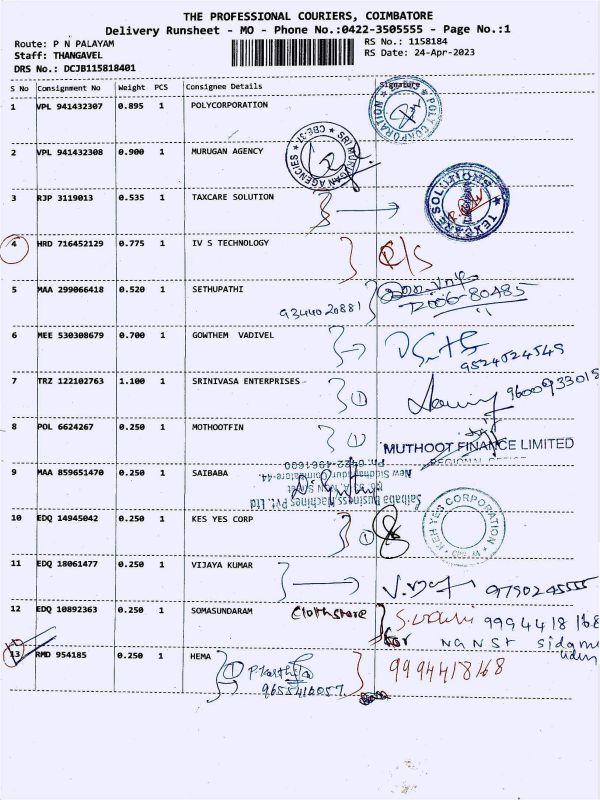 THE PROFESSIONAL COURIERS, COIMBATORE
Delivery Runsheet - MO - Phone No.:0422-3505555 - Page No.:1
Route: P N PALAYAM
RS No.: 1158184
Staff: THANGAVEL
RS Date: 24-Apr-2023
DRS No.: DCJB115818401
S No Consignment No Weight PCS Consignee Details Signature
1 VPL 941432307 0.895 1 POLYCORPORATION
POLY CORPORATION
2 VPL 941432308 0.900 1 MURUGAN AGENCY
SRI MURUGAN AGENCIES ★ CBE-37 ★
3 RJP 3119013 0.535 1 TAXCARE SOLUTION
TEXPARE SOLUTIONS
4 HRD 716452129 0.775 1 IV S TECHNOLOGY
R/S
5 MAA 299066418 0.520 1 SETHUPATHI
9344020881
72006-80485
6 MEE 530308679 0.700 1 GOWTHEM VADIVEL
9524524545
7 TRZ 122102763 1.100 1 SRINIVASA ENTERPRISES
1
9600933015
8 POL 6624267 0.250 1 MOTHOOTFIN
1
MUTHOOT FINANCE LIMITED
REGIONAL OFFICE
9 MAA 859651470 0.250 1 SAIBABA
Saibaba Business Machines Pvt. Ltd
New Siddhapudur, Coimbatore-44.
Ph: 0422-4961600
10 EDQ 14945042 0.250 1 KES YES CORP
1
KEH YES CORPORATION
11 EDQ 18061477 0.250 1 VIJAYA KUMAR
9790245555
12 EDQ 10892363 0.250 1 SOMASUNDARAM
Clothstore
9994418168
for
13 RMD 954185 0.250 1 HEMA
1
P. Karthika
9655410057
9994418168